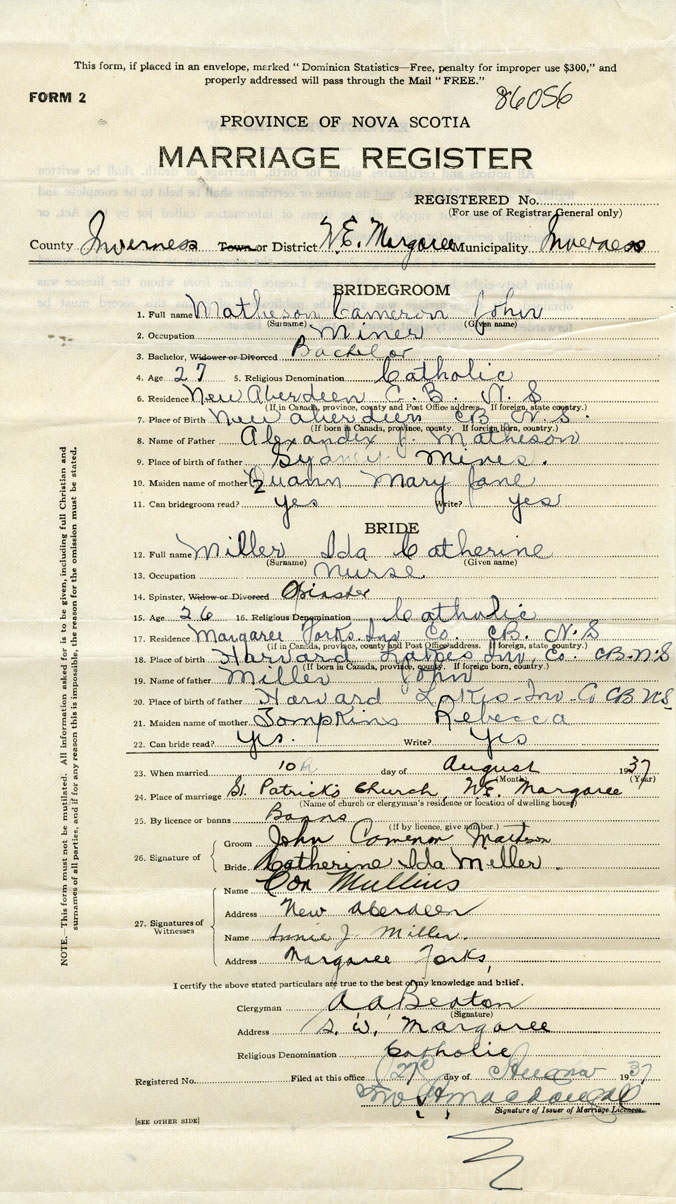 This form, if placed in an envelope, marked "Dominion Statistics—Free, penalty for improper use $300," and
properly addressed will pass through the Mail "FREE."
FORM 2
86056
PROVINCE OF NOVA SCOTIA
MARRIAGE REGISTER
REGISTERED No.
(For use of Registrar General only)
County Inverness Town or District N.E. Margaree Municipality Inverness
BRIDEGROOM
1. Full name Matheson Cameron John
(Surname) (Given name)
2. Occupation Miner
3. Bachelor, Widower or Divorced Bachelor
4. Age 27 5. Religious Denomination Catholic
6. Residence New Aberdeen C.B. N.S
(If in Canada, province, county and Post Office address. If foreign, state country.)
7. Place of Birth New aberdeen CB N.S.
(If born in Canada, province, county. If foreign born, country.)
8. Name of Father Alexander J. Matheson
9. Place of birth of father Sydney Mines.
10. Maiden name of mother Quann Mary Jane
11. Can bridegroom read? yes Write? yes
BRIDE
12. Full name Miller Ida Catherine
(Surname) (Given name)
13. Occupation nurse
14. Spinster, Widow or Divorced Spinster
15. Age 26 16. Religious Denomination Catholic
17. Residence Margaree Forks Inv Co. CB. N.S
(if in Canada, province, county and Post Office address. If foreign, state country.)
18. Place of birth Harvard Lakes Inv. Co. CB-N.S
(If born in Canada, province, county. If foreign born, country.)
19. Name of father Miller John
20. Place of birth of father Harvard Lakes-Inv-Co CB N.S.
21. Maiden name of mother Tompkins Rebecca
22. Can bride read? Yes. Write? Yes
23. When married 10 day of August 1937
(Month) (Year)
24. Place of marriage St. Patrick's Church, N.E. Margaree
(Name of church or clergyman's residence or location of dwelling house)
25. By licence or banns Banns
(If by licence, give number.)
26. Signature of
Groom John Cameron Matheson
Bride Catherine Ida Miller
27. Signatures of Witnesses
Name Con Mullins
Address New aberdeen
Name Annie J. Miller.
Address Margaree Forks,
I certify the above stated particulars are true to the best of my knowledge and belief.
Clergyman A A Beaton
(Signature)
Address S. W. Margaree
Religious Denomination Catholic
Registered No. Filed at this office 27 day of 1937
Signature of Issuer of Marriage Licences.
[SEE OTHER SIDE]
NOTE. This form must not be mutilated. All information asked for is to be given, including full Christian and
surnames of all parties, and if for any reason this is impossible, the reason for the omission must be stated.